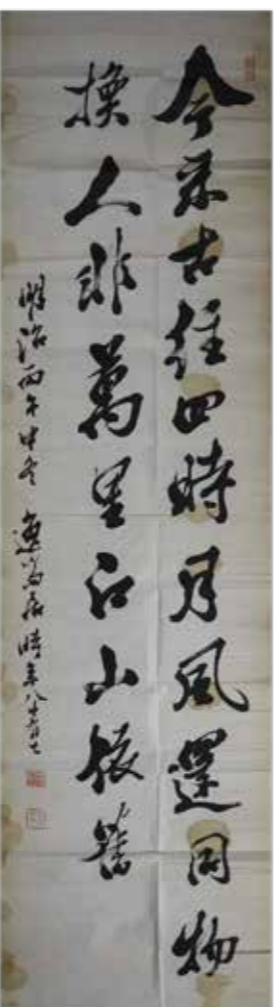 今来古往四時月風還同物
換人非萬里江山依舊
明治丙午中冬 時年八十有七